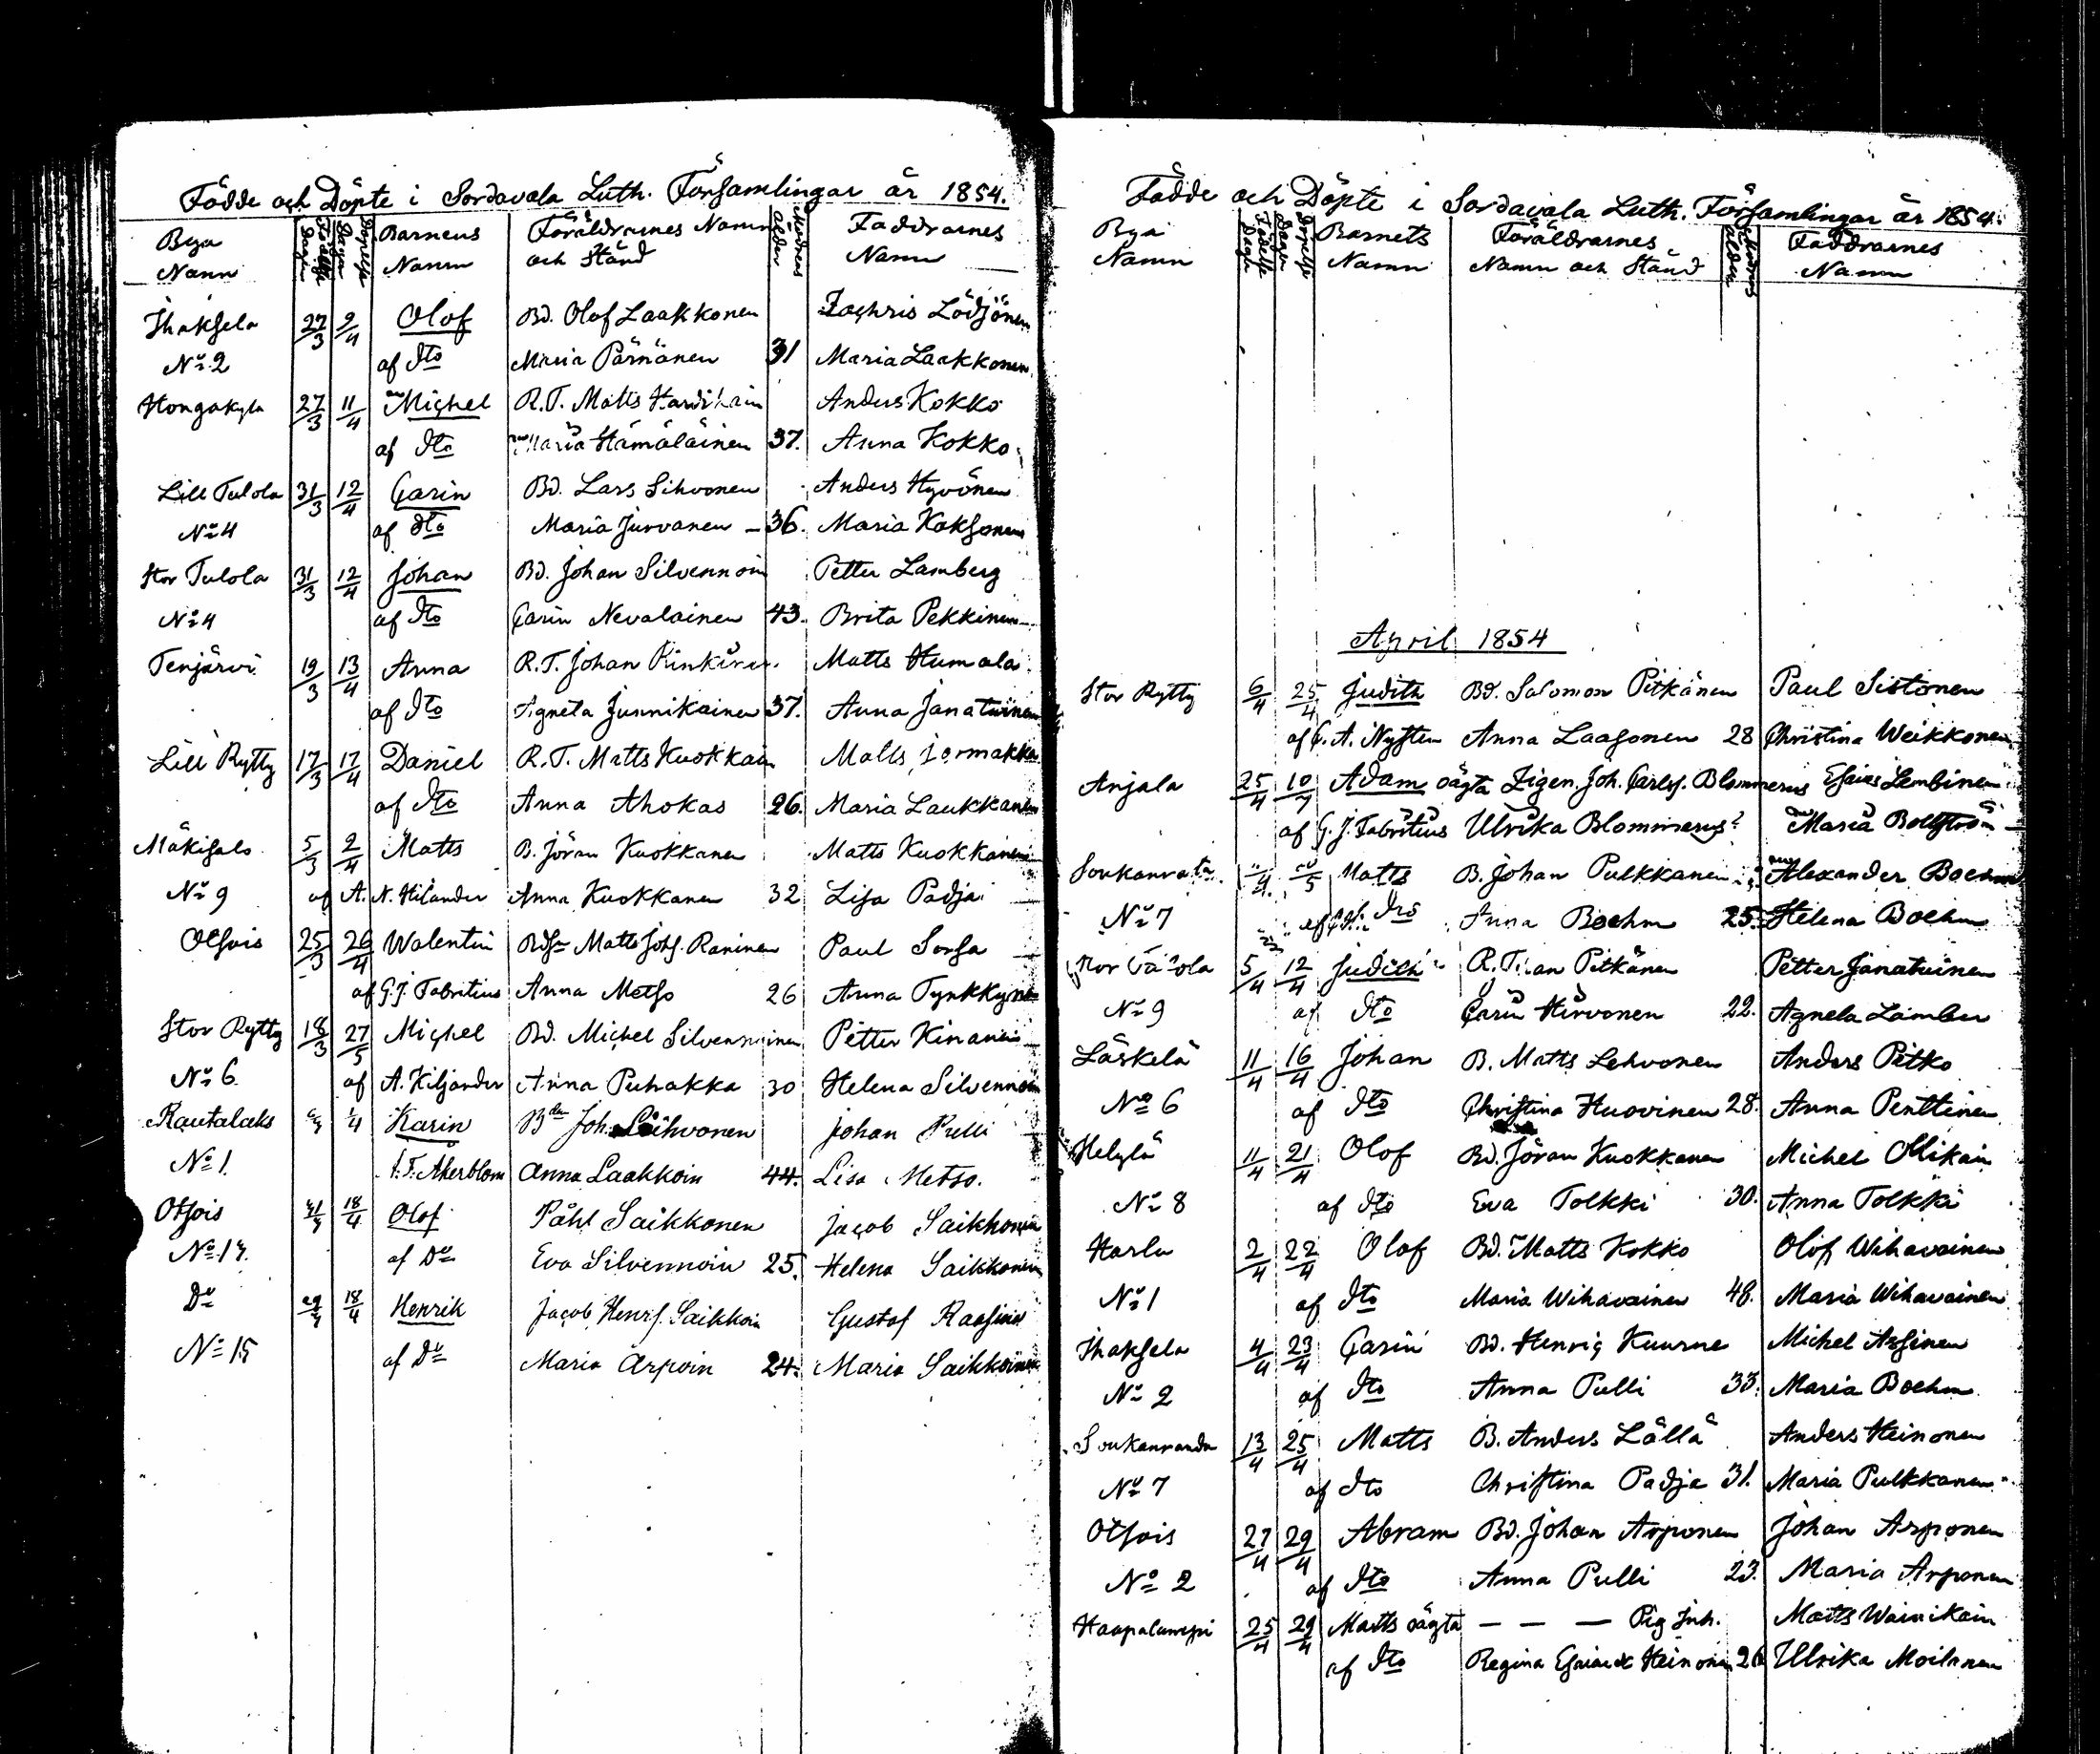 Födde och Döpte i Sordavala Luth. Församlingar år 1854.
Bya Namn Födelse Dagen Döpelse Dagen Barnens Namn Föräldrarnes Namn och Stånd Modrens ålder Faddrarnes Namn
Ihaksela 27/3 9/4 Olof Bd. Olof Laakkonen Zachris Lödjönen
No 2 af Dto Maria Pärnänen 31 Maria Laakkonen
Hongakyla 27/3 11/4 Michel R.T. Matts Anders Kokko
af Dto Maria Hämäläinen 37. Anna Kokko
Lill Tulola 31/3 12/4 Carin Bd. Lars Sihvonen Anders Hyvönen
No 4 af dto Maria Jurvanen – 36. Maria Koksonen
Stor Tulola 31/3 12/4 Johan Bd. Johan Silvennoin Petter Lamberg
No 4 af Dto Carin Nevalainen 43. Brita Pekkinen
Tenjärvi 19/3 13/4 Anna R.T. Johan Matts Humala
af Dto Agneta Junnikainen 37. Anna Janatuinen
Lill Rytty 17/3 17/4 Daniel R.T. Matts Kuokkain Matts Jormakka
af Dto Anna Ahokas 26. Maria Laukkanen
Mäkisalo 5/3 2/4 Matts B. Jöran Kuokkanen Matts Kuokkanen
No 9 af A. N. Hilander Anna Kuokkanen 32 Lisa Padja
Otsois 25/3 26/4 Walentin Bdsn Matts Johs. Raninen Paul Sorsa
af G. J. Fabritius Anna Metso 26 Anna Tynkkynen
Stor Rytty 18/3 27/5 Michel Bd. Michel Silvennoinen Petter Kinanen
No 6. af A. Hiljander Anna Puhakka 30 Helena Silvennoin
Rautalaks 1/4 Karin Bdn Joh. Sihvonen Johan Pulli
No 1. Åkerblom Anna Laakkoin 44. Lisa Metso.
Otsois 18/4 Olof Påhl Saikkonen Jacob Saikkonen
No 14. af Do Eva Silvennoin 25. Helena Saikkonen
Do 18/4 Henrik Jacob Henrs. Saikkoin Gustaf
No 15 af Do Maria Arpoin 24. Maria Saikkoinen
Födde och Döpte i Sordavala Luth. Församlingar år 1854.
Bya Namn Födelse Dagen Döpelse Dagen Barnets Namn Föräldrarnes Namn och Stånd Modrens ålder Faddrarnes Namn
April 1854
Stor Rytty 6/4 25/4 Judith Bd. Salomon Pitkänen Paul Sistonen
af C. A. Nysten Anna Laasonen 28 Christina Weikkonen
Anjala 25/4 10/7 Adam oägta Zigen. Joh. Carlss. Blommerus Esaias Lembinen
af G. J. Fabritius Ulrika Blommerus? Maria
Matts B. Johan Pulkkanen Alexander Boehm
No 7 af Dto Anna Boehm 25. Helena Boehm
5/4 12/4 Judith R.T. Pitkänen Petter Janatuinen
No 9 af Dto Carin Hirvonen 22. Agneta
Läskelä 11/4 16/4 Johan B. Matts Lehvonen Anders Pitko
No 6 af Dto Christina Huovinen 28. Anna Penttinen
Helylä 11/4 21/4 Olof Bd. Jöran Kuokkanen Michel Mikain
No 8 af Dto Eva Tolkki 30. Anna Tolkki
Harlu 2/4 22/4 Olof Bd. Matts Kokko Olof Wihavainen
No 1 af Dto Maria Wihavainen 48. Maria Wihavainen
Ihaksela 4/4 23/4 Carin Bd. Henric Kuurne Michel Assinen
No 2 af Dto Anna Pulli 33. Maria Boehm
Soukanranda 13/4 25/4 Matts B. Anders Lällä Anders Heinonen
No 7 af dto Christina Padja 31. Maria Pulkkanen
Otsois 27/4 29/4 Abram Bd. Johan Arponen Johan Arponen
No 2 af Dto Anna Pulli 23. Maria Arponen
Haapalampi 25/4 29/4 Matts oägta — — — Pig Inh. Matts Wainikain
af Dto Regina Esaiasd. Heinonen 26 Ulrika Moilanen